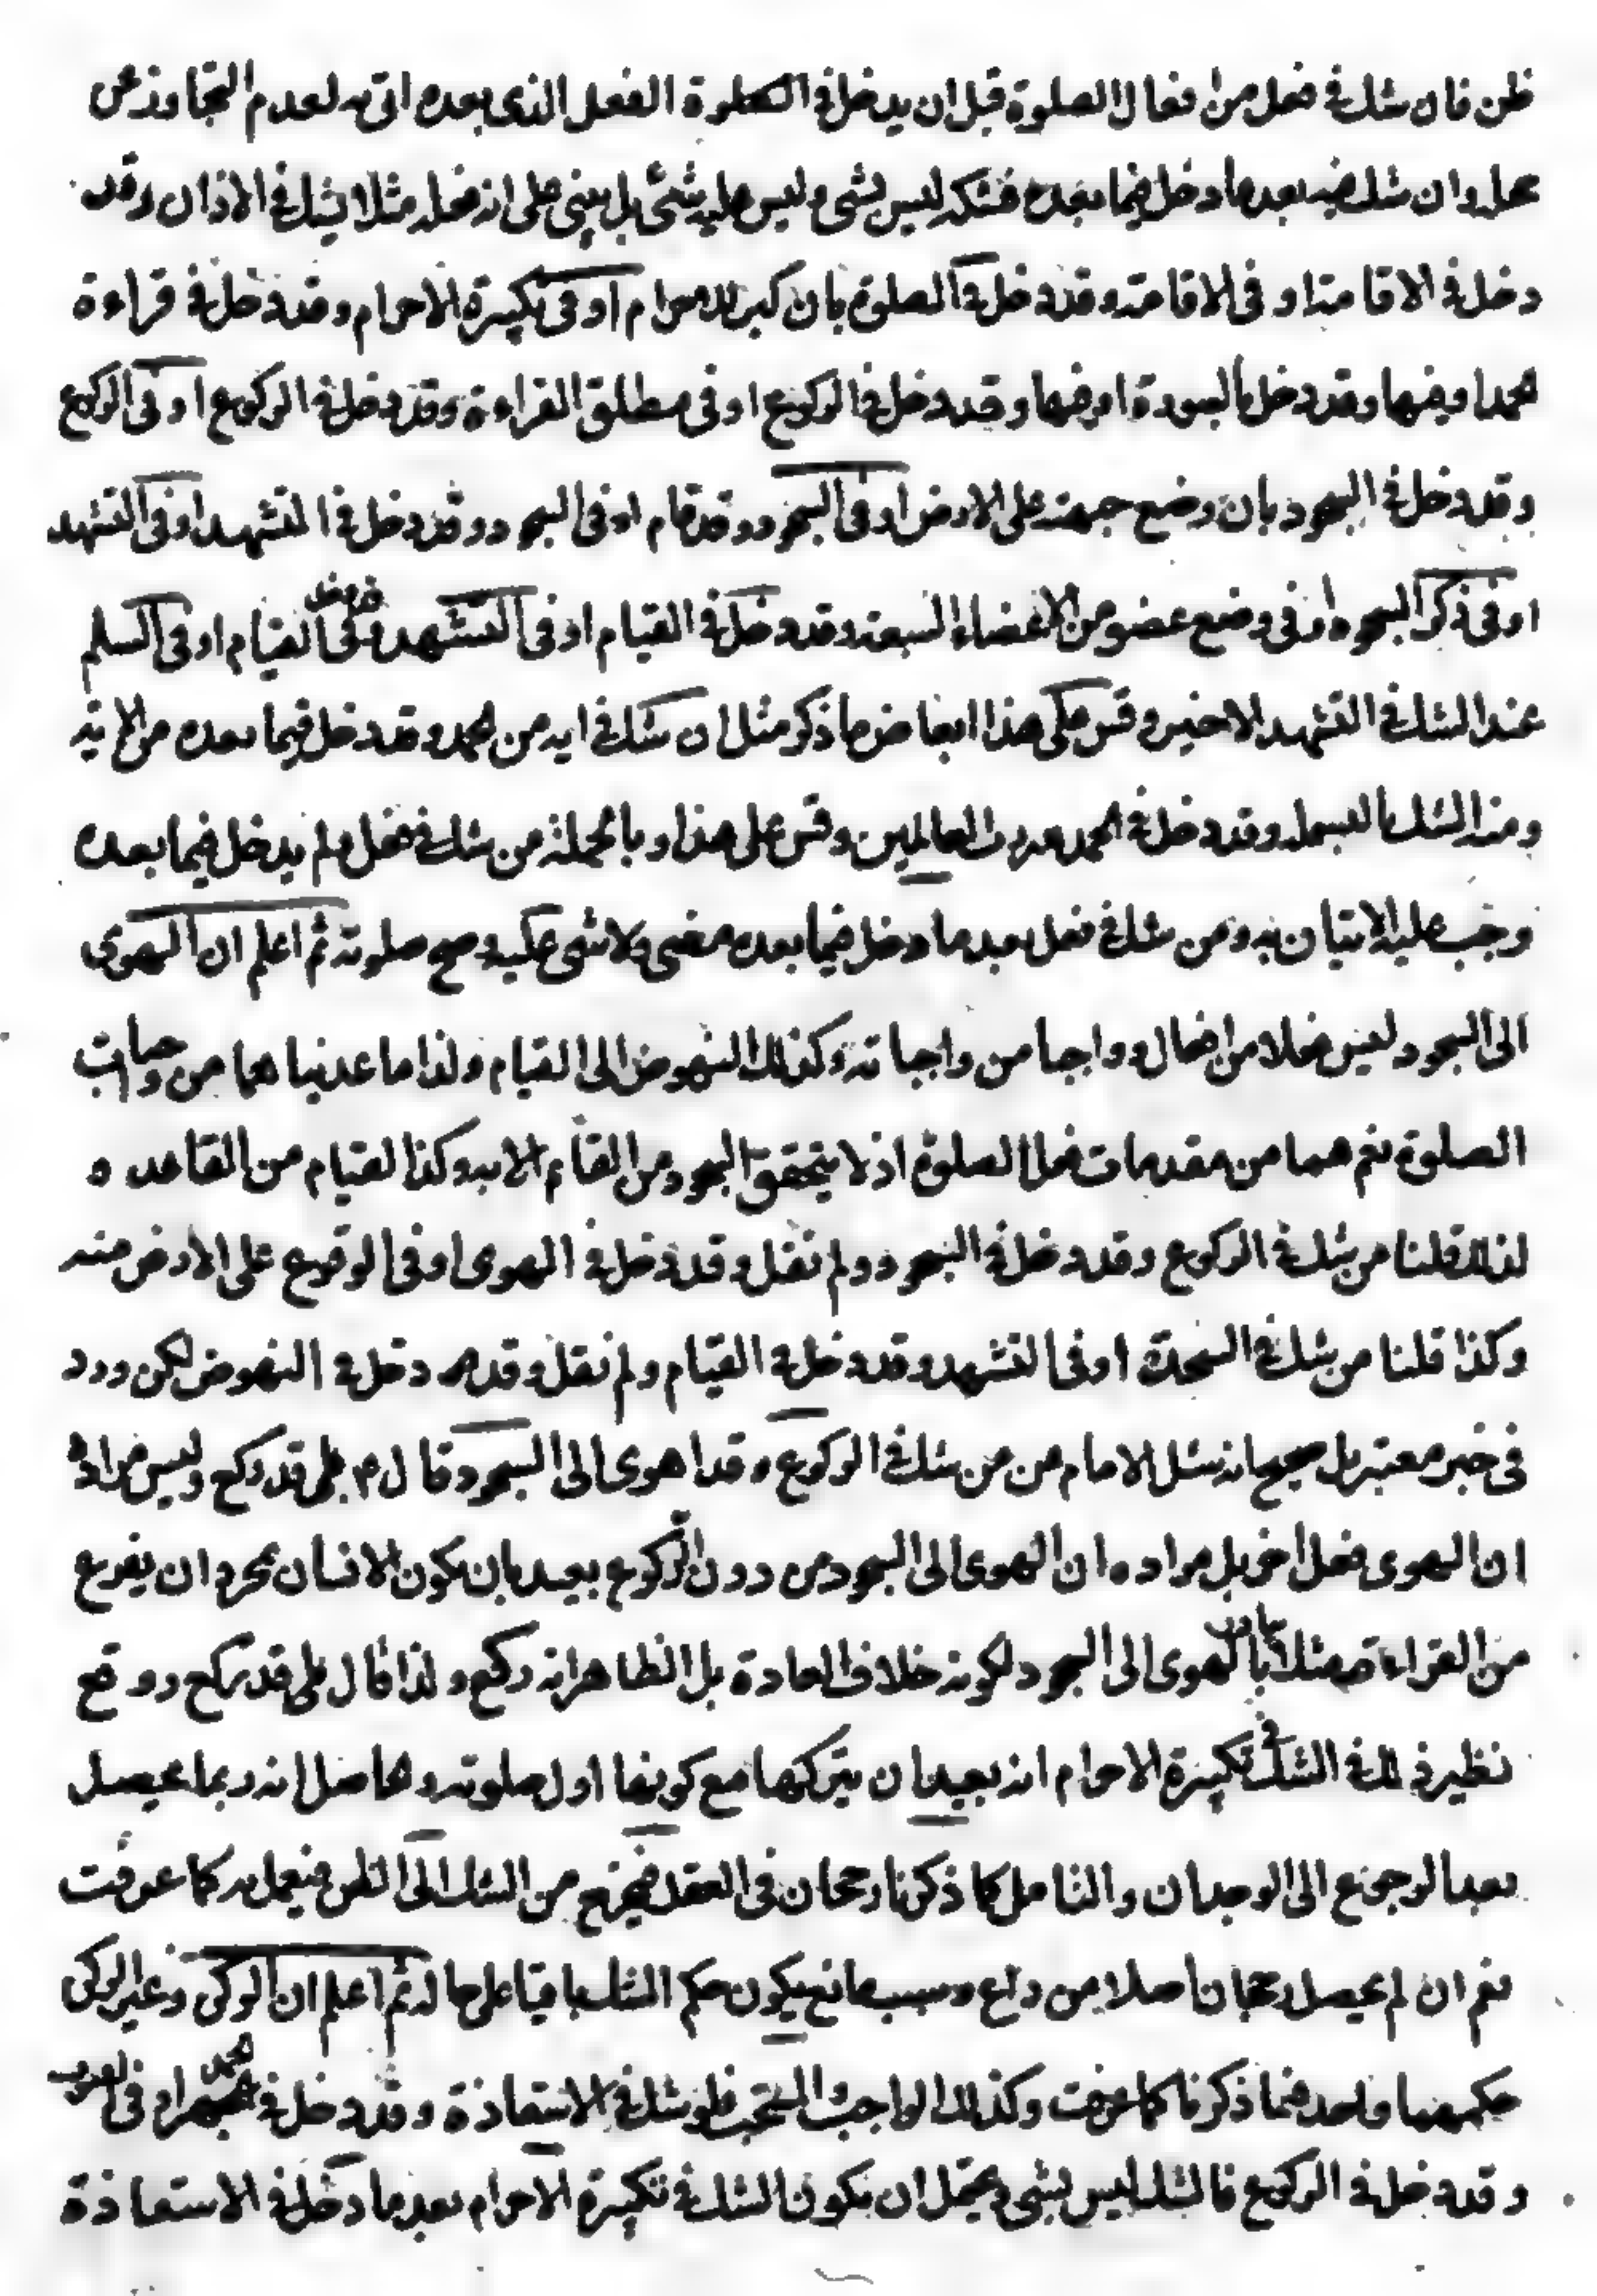 ظن فان شك في فعل من افعال الصلوة قبل ان يدخل في الصلوة الفعل الذى بعده اتى به لعدم التجاوز عن
محله وان شك فيه بعد ما دخل فيما بعده فشكه ليس بشى وليس عليه شئ بل يبنى على انه فعله مثلا يشك في الاذان وقد
دخل في الاقامة او فى الاقامة وقد دخل في الصلوة بان كبر للاحرام او فى تكبيرة الاحرام وقد دخل في قراءة
الحمد او فيها وقد دخل بالسورة او فيها وقد دخل في الركوع او فى مطلق القراءة وقد دخل في الركوع او فى الركوع
وقد دخل في السجود بان وضع جبهته على الارض او فى السجود وقد قام او فى السجود وقد دخل في التشهد او فى التشهد
او فى ذكر السجود او فى وضع عضو من الاعضاء السبعة وقد دخل في القيام او فى التشهد قد دخل فى القيام او فى السلم
عند الشك في التشهد الاخير وقس على هذا ابعاض ما ذكر مثل ان شك في اية من الحمد وقد دخل فيما بعده من الاية
ومنه الشك بالبسملة وقد دخل في الحمد لله رب العالمين وقس على هذا وبالجملة من شك في فعل ولم يدخل فيما بعده
وجب عليه الاتيان به ومن شك في فعل بعد ما دخل فيما بعده مضى ولا شى عليه وصح صلوته ثم اعلم ان الهوى
الى السجود ليس فعلا من افعاله وواجبا من واجباته وكذلك النهوض الى القيام ولذا ما عدنياهما من واجبات
الصلوة نعم هما من مقدمات فعل الصلوة اذ لا يتحقق السجود من القائم الا به وكذا القيام من القاعد ه
لذلك قلنا من شك في الركوع وقد دخل في السجود ولم نقل وقد دخل في الهوى او فى الوقوع على الارض منه
وكذا قلنا من شك في السجدة او فى التشهد وقد دخل في القيام ولم نقل وقد دخل في النهوض لكن ورد
فى خبر معتبر بل صحيح انه سئل الامام عن من شك في الركوع وقد اهوى الى السجود قال ع بلى قد ركع وليس مراده
ان الهوى فعل اخر بل مراده ان الهوى الى السجود من دون الركوع بعيد بان يكون الانسان بمجرد ان يفرغ
من القراءة مثلا يبادر بالهوى الى السجود لكونه خلاف العادة بل الظاهر انه ركع ولذا قال بلى قد ركع ووقع
نظير ذلك في الشك فى تكبيرة الاحرام انه بعيد ان يتركها مع كونها اول صلوته والحاصل انه ربما يحصل
بعد الرجوع الى الوجدان والتامل كما ذكرنا رجحان فى العقد فيخرج من الشك الى الظن فيعمل به كما عرفت
نعم ان لم يحصل رجحان اصلا من داع وسبب مانع يكون حكم الشك باقيا على حاله ثم اعلم ان الركن وغير الركن
حكمهما واحد فيما ذكرنا كما عرفت وكذلك الواجب والمستحب فلو شك في الاستعاذة وقد دخل في الحمد او فى القنوت
وقد دخل في الركوع فالشك ليس بشى ويحتمل ان يكون الشك في تكبيرة الاحرام بعد ما دخل في الاستعاذة